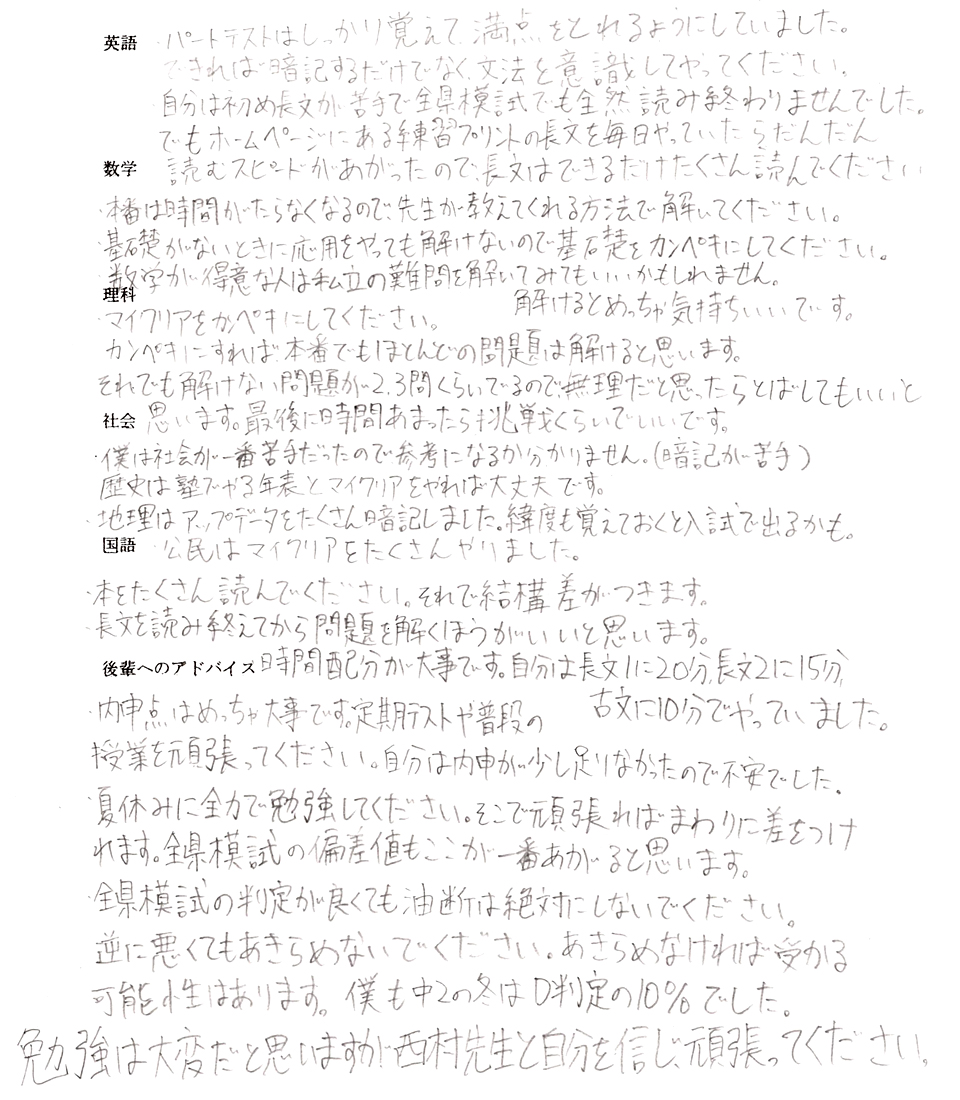 英語 ・パートテストはしっかり覚えて、満点をとれるようにしていました。
できれば暗記するだけでなく、文法を意識してやってください。
・自分は初め長文が苦手で全県模試でも全然読み終わりませんでした。
でもホームページにある練習プリントの長文を毎日やっていたらだんだん
数学 読むスピードがあがったので、長文はできるだけたくさん読んでください
・本番は時間がたらなくなるので、先生が教えてくれる方法で解いてください。
・基礎がないときに応用をやっても解けないので基礎をカンペキにしてください。
・数学が得意な人は私立の難問を解いてみてもいいかもしれません。
理科 解けるとめっちゃ気持ちいいです。
・マイクリアをカンペキにしてください。
カンペキにすれば本番でもほとんどの問題は解けると思います。
それでも解けない問題が2.3問くらいでるので、無理だと思ったらとばしてもいいと
社会 思います。最後に時間あまったら挑戦くらいでいいです。
・僕は社会が一番苦手だったので参考になるか分かりません。(暗記が苦手)
歴史は塾でやる年表とマイクリアをやれば大丈夫です。
・地理はアップデータをたくさん暗記しました。緯度も覚えておくと入試で出るかも。
国語 公民はマイクリアをたくさんやりました。
・本をたくさん読んでください。それで結構差がつきます。
・長文を読み終えてから問題を解くほうがいいと思います。
後輩へのアドバイス 時間配分が大事です。自分は長文1に20分、長文2に15分、
古文に10分でやっていました。
・内申点はめっちゃ大事です。定期テストや普段の
授業を頑張ってください。自分は内申が少し足りなかったので不安でした。
・夏休みに全力で勉強してください。そこで頑張ればまわりに差をつけ
れます。全県模試の偏差値もここが一番あがると思います。
・全県模試の判定が良くても油断は絶対にしないでください。
逆に悪くてもあきらめないでください。あきらめなければ受かる
可能性はあります。僕も中2の冬はD判定の10%でした。
勉強は大変だと思いますが西村先生と自分を信じ、頑張ってください。